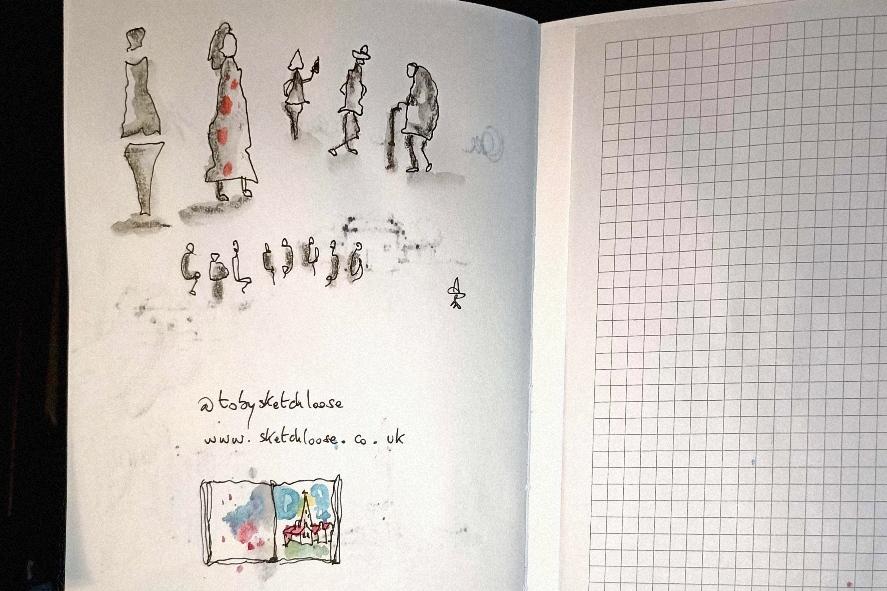 @tobysketchloose
www.sketchloose.co.uk